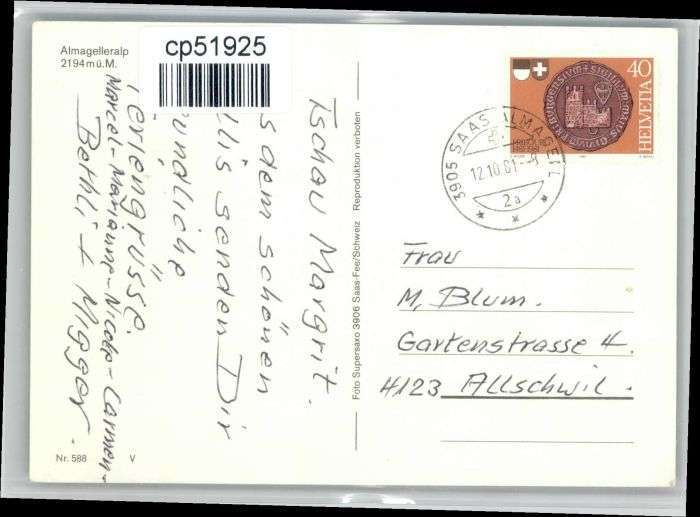 Almagelleralp
2194 m ü. M.
cp51925
Tschau Margrit.
s dem schönen
lis senden Dir
undliche
eriengrüsse.
Marcel-Marianne-Nicole-Carmen-
Bethli +
Nr. 588 V
Foto Supersaxo 3906 Saas-Fee/Schweiz Reproduktion verboten
40
HELVETIA
3905 SAAS-ALMAGELL
12.10.81-9
2a
Frau
M. Blum.
Gartenstrasse 4.
4123 Allschwil.